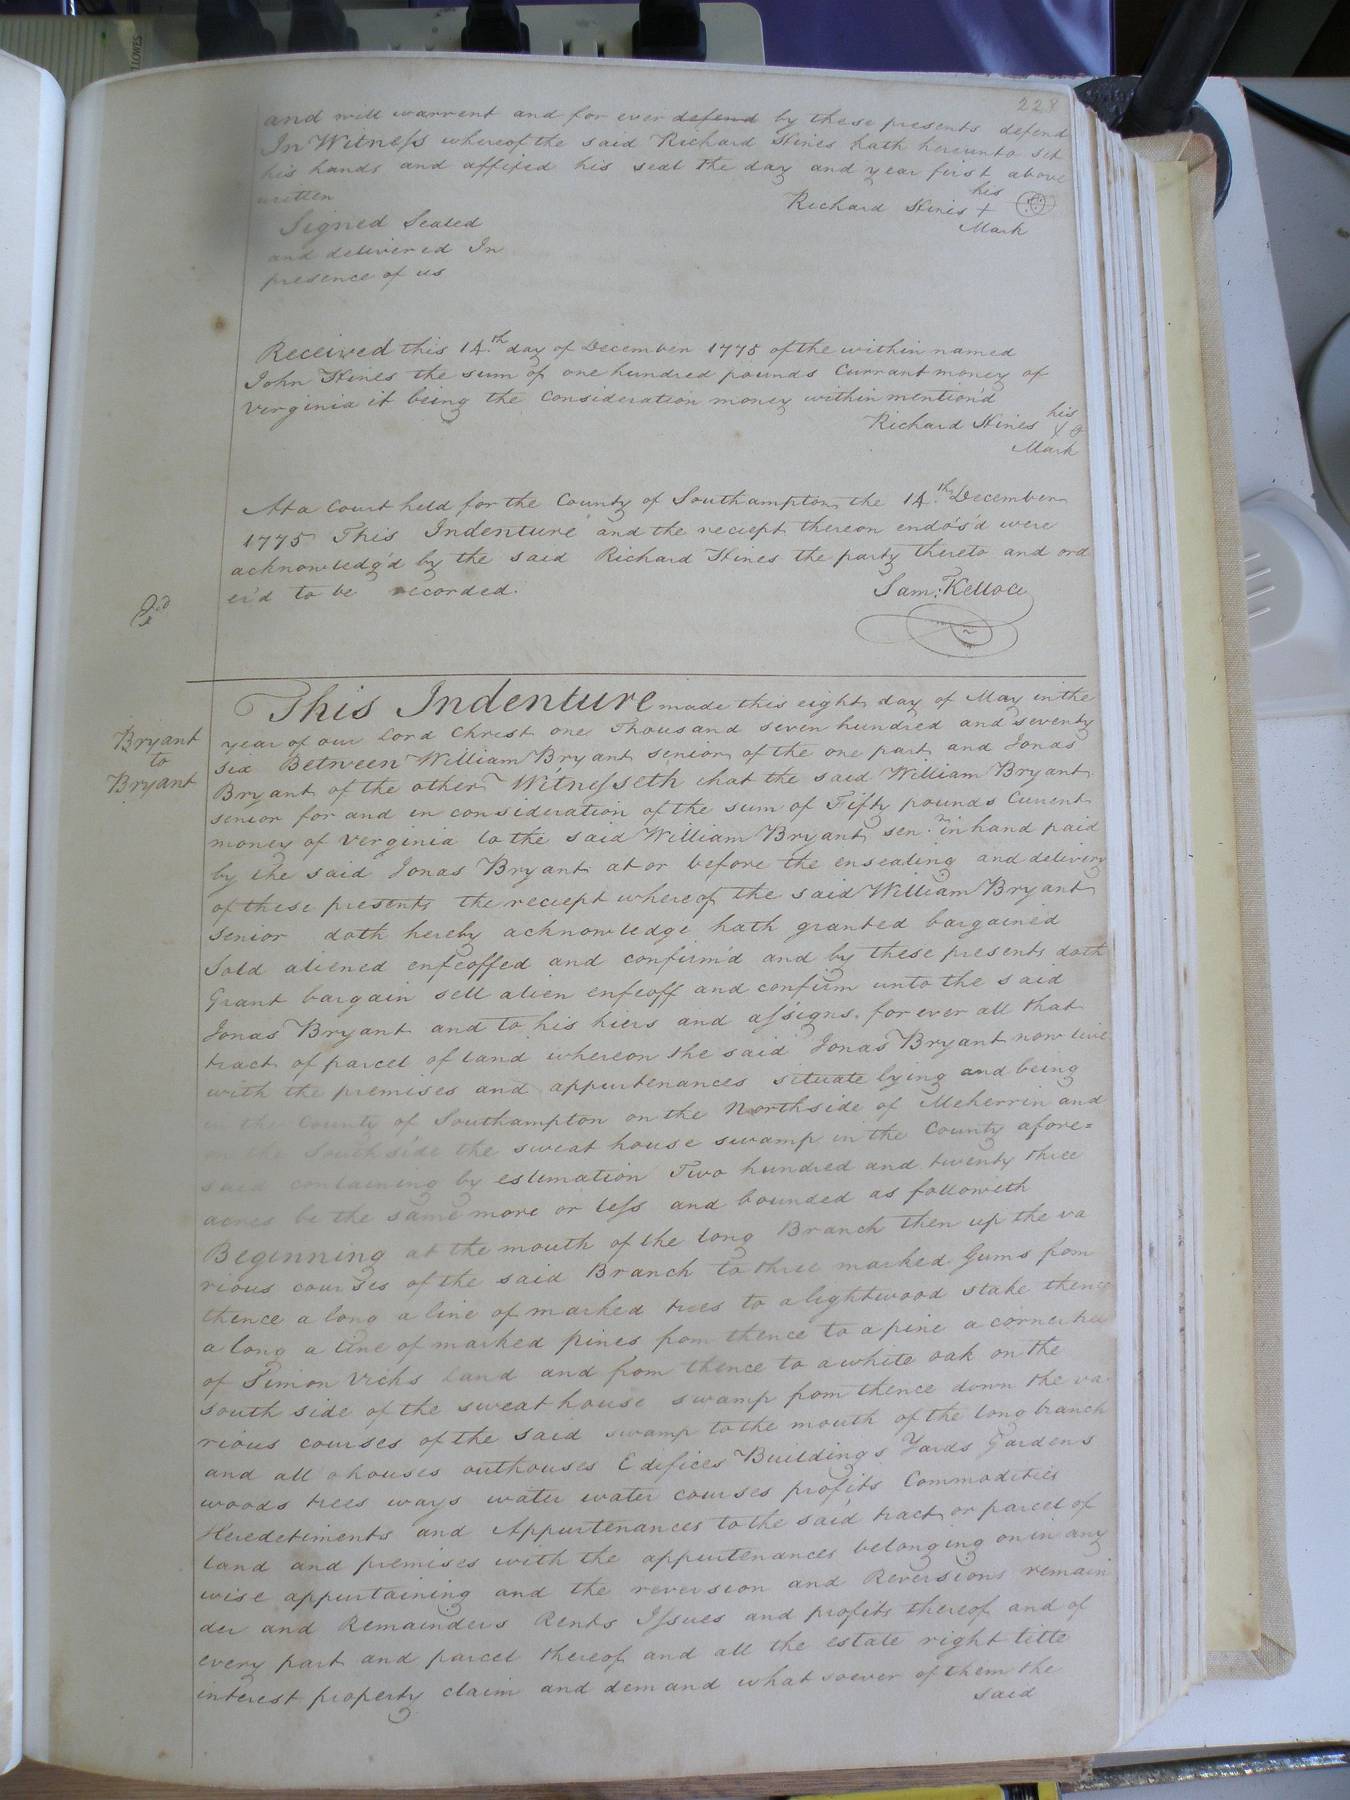 228
and will warrent and for ever defend by these presents defend
In Witness whereof the said Richard Hines hath hereunto set
his hands and affixed his seal the day and year first above
written
his
Richard Hines +
Mark
Signed Sealed
and delivered In
presence of us
Received this 14.th day of December 1775 of the within named
John Hines the sum of one hundred pounds Currant money of
Verginia it being the Consideration money within mention'd
his
Richard Hines
Mark
At a Court held for the County of Southampton the 14.th December
1775 This Indenture and the reciept thereon endos'd were
acknowledg'd by the said Richard Hines the party thereto and ord
er'd to be recorded.
Sam: Kelloce
Bryant
to
Bryant
This Indenture made this eight day of May in the
year of our Lord Christ one Thousand seven hundred and seventy
six Between William Bryant senior of the one part and Jonas
Bryant of the other Witnesseth that the said William Bryant
senior for and in consideration of the sum of Fifty pounds Current
money of Verginia to the said William Bryant sen.r in hand paid
by the said Jonas Bryant at or before the ensealing and delivery
of these presents the reciept whereof the said William Bryant
Senior doth hereby acknowledge hath granted bargained
Sold aliened enfeoffed and confirm'd and by these presents doth
Grant bargain sell alien enfeoff and confirm unto the said
Jonas Bryant and to his hiers and assigns. for ever all that
tract of parcel of land whereon the said Jonas Bryant now live
with the premises and appurtenances situate lying and being
in the County of Southampton on the Northside of Meherrin and
on the Southside the sweat house swamp in the County afore=
said containing by estimation Two hundred and twenty three
acres be the same more or less and bounded as followeth
Beginning at the mouth of the long Branch then up the va
rious courses of the said Branch to three marked Gums from
thence a long a line of marked trees to a lightwood stake thence
a long a line of marked pines from thence to a pine a corner tree
of Simon Vicks Land and from thence to a white oak on the
south side of the sweat house swamp from thence down the va
rious courses of the said swamp to the mouth of the long branch
and all ohouses outhouses Edifices Buildings Yards Gardens
woods trees ways water water courses profits Commodities
Heredetiments and Appurtenances to the said tract or parcel of
land and premises with the appurtenances belonging on in any
wise appurtaining and the reversion and Reversions remain
der and Remainders Rents Issues and profits thereof and of
every part and parcel thereof and all the estate right title
interest property claim and demand what soever of them the
said